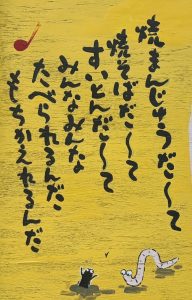 焼まんじゅうだ～って
焼そばだ～って
すいとんだ～って
みんなみんな
たべられるんだ
もちかえれるんだ